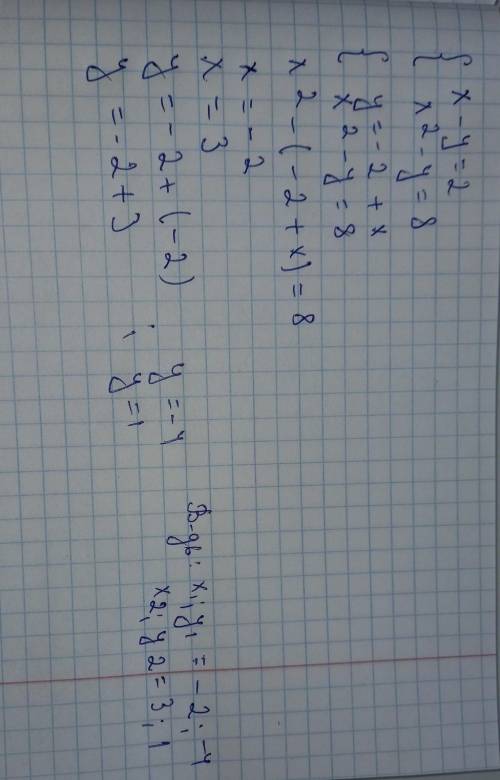 { x-y=2
x2-y=8
{ y=-2+x
x2-y=8
x2-(-2+x)=8
x=-2
x=3
y=-2+(-2) ; y=-4
y=-2+3 ; y=1
В-дь: x1;y1=-2;-4
x2;y2=3;1